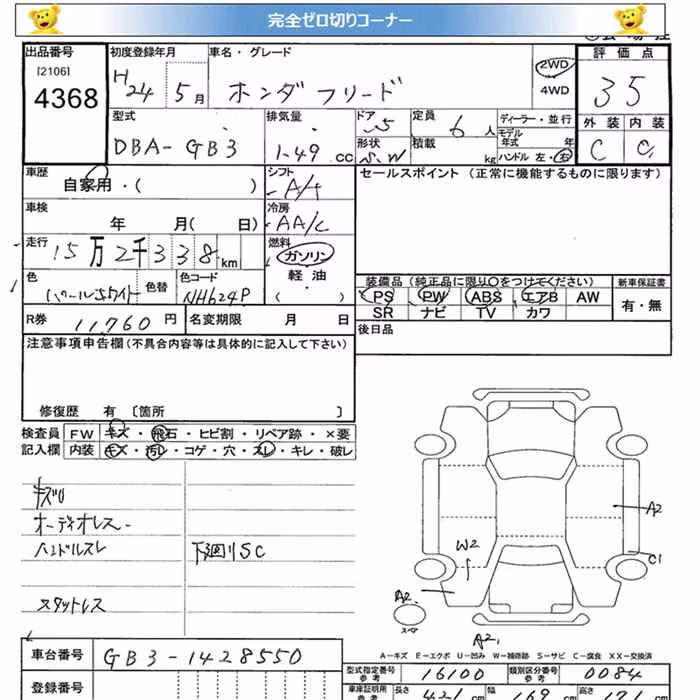 完全ゼロ切りコーナー
出品番号 初度登録年月 車名・グレード 評価点
[2106]
4368 H24 5月 ホンダ フリード 2WD 4WD 35
型式 排気量 ドア 定員 ディーラー・並行 外装 内装
DBA-GB3 1.49 cc 5 6人 モデル年式 年 C C
形状 積載 kg ハンドル 左・右
S.W
車歴 自家用・( ) シフト A/T セールスポイント (正常に機能するものに限ります)
車検 年 月( 日) 冷房 AA/C
走行 15万2千338km 燃料 ガソリン 軽油 ( )
色 パールホワイト 色替 色コード NH624P
装備品 (純正品に限り○をつけてください) 新車保証書
PS PW ABS エアB AW 有・無
SR ナビ TV カワ
R券 11,760円 名変期限 月 日 後日品
注意事項申告欄(不具合内容等は具体的に記入して下さい)
修復歴 有 〔箇所 〕
検査員 FW キズ・飛石・ヒビ割・リペア跡・×要
記入欄 内装 キズ・汚レ・コゲ・穴・スレ・キレ・破レ
キズU
オーディオレス
ハンドルスレ 下廻りSC
スタットレス
A2
W2
C1
A2
スペア
A2
A-キズ E-エクボ U-凹み W-補修跡 S-サビ C-腐食 XX-交換済
車台番号 GB3-1428550
型式指定番号 参考 16100 類別区分番号 参考 0084
登録番号
車庫証明用 参考 長さ 421 cm 幅 169 cm 高さ 171 cm